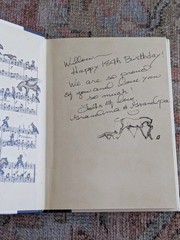 Willow -
Happy 18th Birthday!
We are so proud
of you and love you
so much!
of love,
Grandma & Grandpa